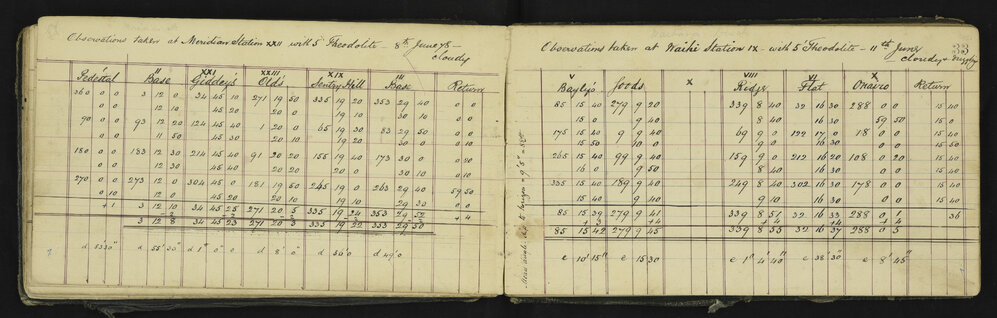 Observations taken at Meridian Station XXII with 5" Theodolite - 8th June 78 -
cloudy
Pedestal II Base XXI Giddey's XXIII Old's XIX Sentry Hill III Base Return
360 0 0 3 12 0 34 45 10 271 19 50 335 19 20 353 29 40 0 0
0 10 12 10 45 20 20 0 19 10 30 10 0 0
90 0 0 93 12 20 124 45 40 1 20 0 65 19 30 83 29 50 0 0
0 0 11 50 45 30 20 10 19 20 30 0 0 10
180 0 0 183 12 30 214 45 40 91 20 20 155 19 40 173 30 0 0 50
0 0 12 30 45 40 20 20 20 0 30 0 0 0
270 0 0 273 12 0 304 45 0 181 19 50 245 19 0 263 29 40 59 50
0 10 12 0 45 20 20 10 19 10 29 30 0 0
+1 3 12 10 34 45 25 271 20 5 335 19 24 353 29 52 +4
3 12 8 34 45 23 271 20 3 335 19 22 353 29 50
d 55' 30" d 1° 0' 0 d 8' 0" d 56' 0 d 49' 0
Observations taken at Waihi Station IX - with 5" Theodolite - 11th June
33
cloudy &
V Bayly's Goods X VIII Ridge VI Flat X Onairo Return
85 15 40 279 9 20 339 8 40 32 16 30 288 0 0 15 40
15 0 9 40 8 40 16 30 59 50 15 40
175 15 40 9 9 40 69 9 0 122 17 0 18 0 0 15 40
15 50 10 0 9 0 16 30 0 0 15 40
265 15 40 99 9 40 159 9 0 212 16 20 108 0 20 15 40
16 0 9 50 8 40 16 30 0 0 15 40
335 15 40 189 9 40 249 8 40 302 16 30 178 0 0 15 40
15 40 9 40 9 10 16 30 0 0 15 40
85 15 39 279 9 41 339 8 51 32 16 33 288 0 1 36
+3 +4 +4 +4 +4
85 15 42 279 9 45 339 8 55 32 16 37 288 0 5
e 10' 15" e 15 30 e 1° 4' 40" e 38' 30" e 8' 45"